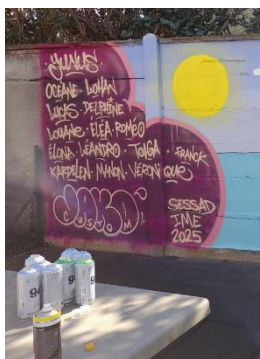 YUNUS
OCÉANE · LOHAN
LUCAS · DELPHINE
LOUANE · ELEA · ROMÉO
ELONA · LEANDRO · TONGA · FRANCK
KARDELEN · MANON · VERONIQUE
SESSAD
IME
2025
94